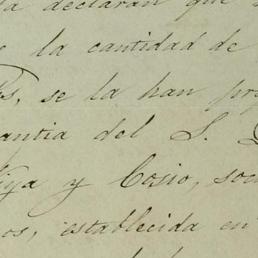 la declaran que
la cantidad de
se la han
antia del S.
y Cosio, soc
os, establecida en